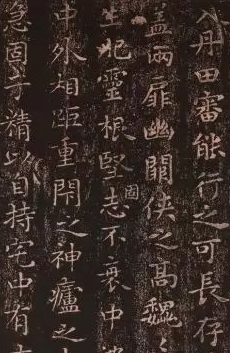 入丹田審能行之可長存
盖兩扉幽闕俠之高魏〻
生肥靈根堅固志不衰中
中外相距重閇之神廬之
急固子精以自持宅中有